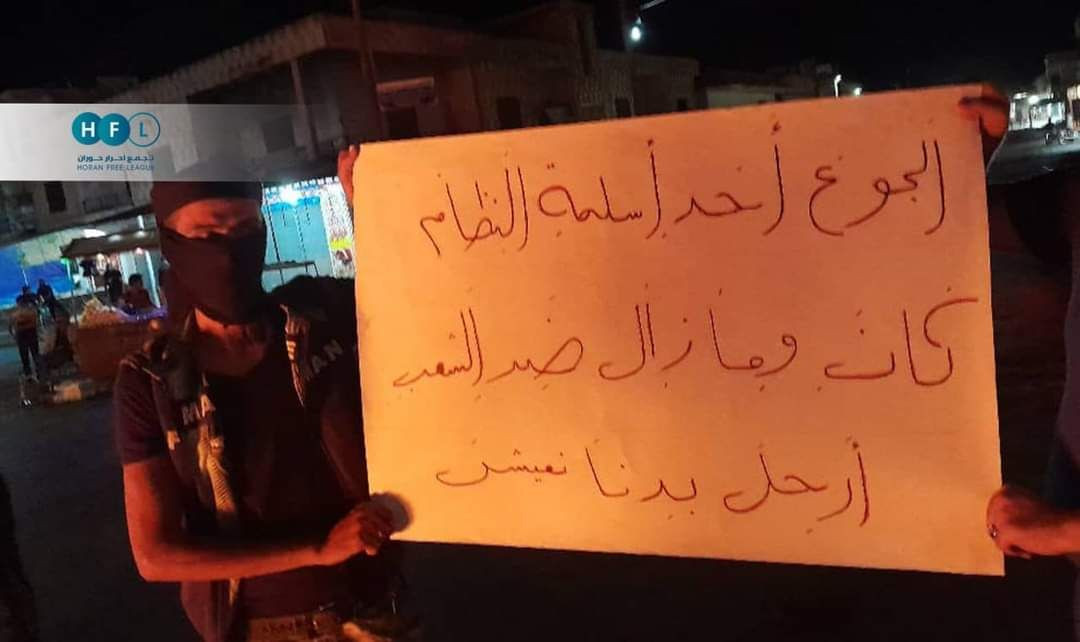 HFL
تجمع أحرار حوران
HORAN FREE LEAGUE
الجوع أحد أسلحة النظام
كان ومازال ضد الشعب
أرحل بدنا نعيش
MAN